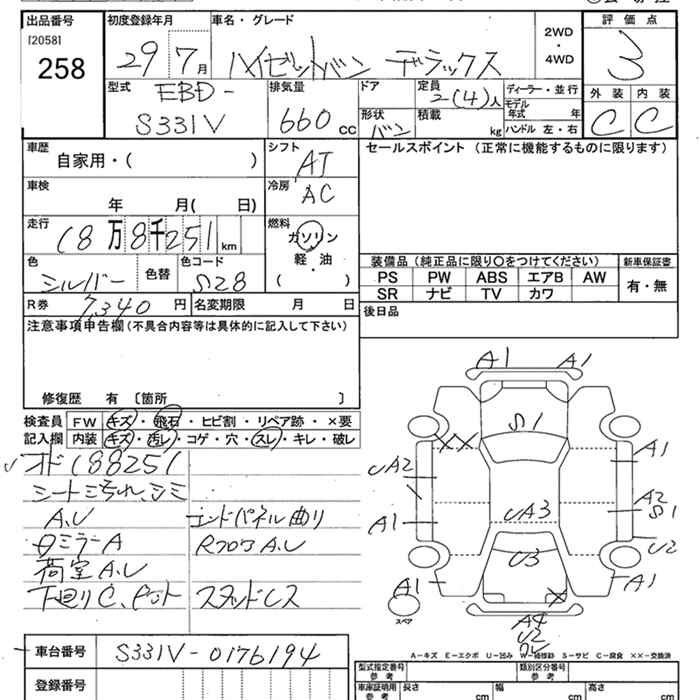 出品番号
[2058]
258
初度登録年月
29 7月
車名・グレード
ハイゼットバン デラックス
2WD
・
4WD
評価点
3
外装 内装
C C
型式
EBD-
S331V
排気量
660 cc
ドア
定員
2(4)人
形状
バン
積載
kg
ディーラー・並行
モデル年式 年
ハンドル 左・右
車歴
自家用・( )
シフト
AT
セールスポイント (正常に機能するものに限ります)
車検
年 月( 日)
冷房
AC
走行
18万8千251km
燃料
ガソリン
軽・油
( )
色
シルバー
色替
色コード
S28
装備品 (純正品に限り○をつけてください)
新車保証書
PS PW ABS エアB AW
SR ナビ TV カワ
有・無
R券 7,340 円
名変期限 月 日
後日品
注意事項申告欄(不具合内容等は具体的に記入して下さい)
修復歴 有 〔箇所 〕
検査員
記入欄
FW キズ・飛石・ヒビ割・リペア跡・×要
内装 キズ・汚レ・コゲ・穴・スレ・キレ・破レ
オド188251
シート汚れ、シミ
A、U エンドパネル曲り
ミラーA Rフロア A、U
荷室 A、U
下廻りC、 スタッドレス
A1 A1
S1
A1
UA2
A2
S1
A1
UA3
U2
U3
A1 A1
スペア
A4
U2
A-キズ E-エクボ U-凹み W-補修跡 S-サビ C-腐食 ××-交換済
車台番号 S331V-0176194
登録番号
型式指定番号
参考
類別区分番号
参考
車庫証明用
参考
長さ cm
幅 cm
高さ cm